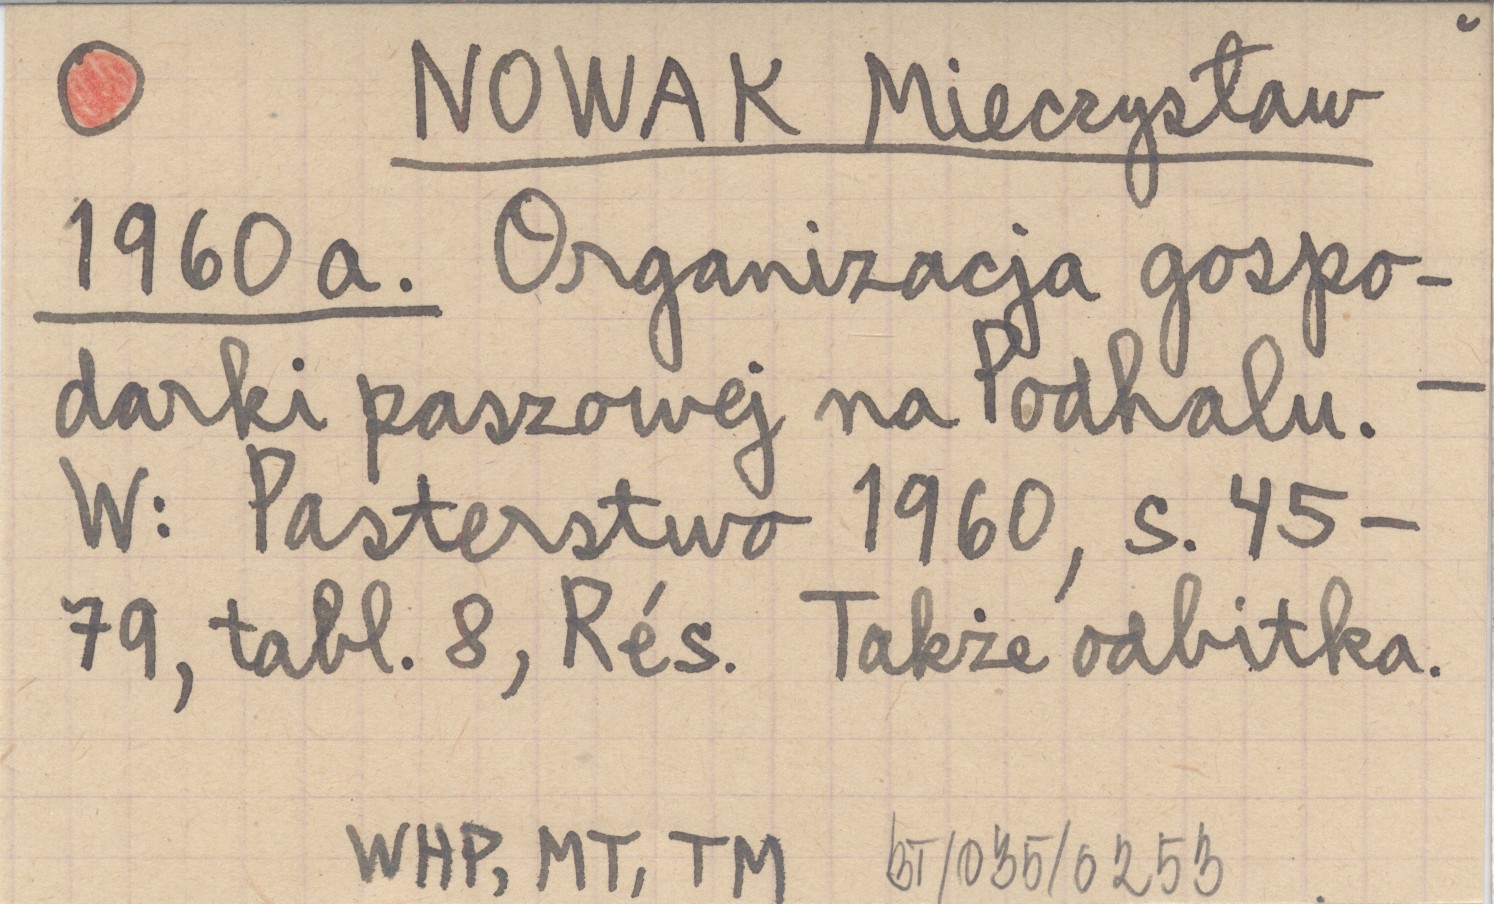 NOWAK Mieczysław
1960 a. Organizacja gospo-
darki paszowej na Podhalu. —
W: Pasterstwo 1960, s. 45-
79, tabl. 8, Rés. Także odbitka.
WHP, MT, TM BT/035/0253